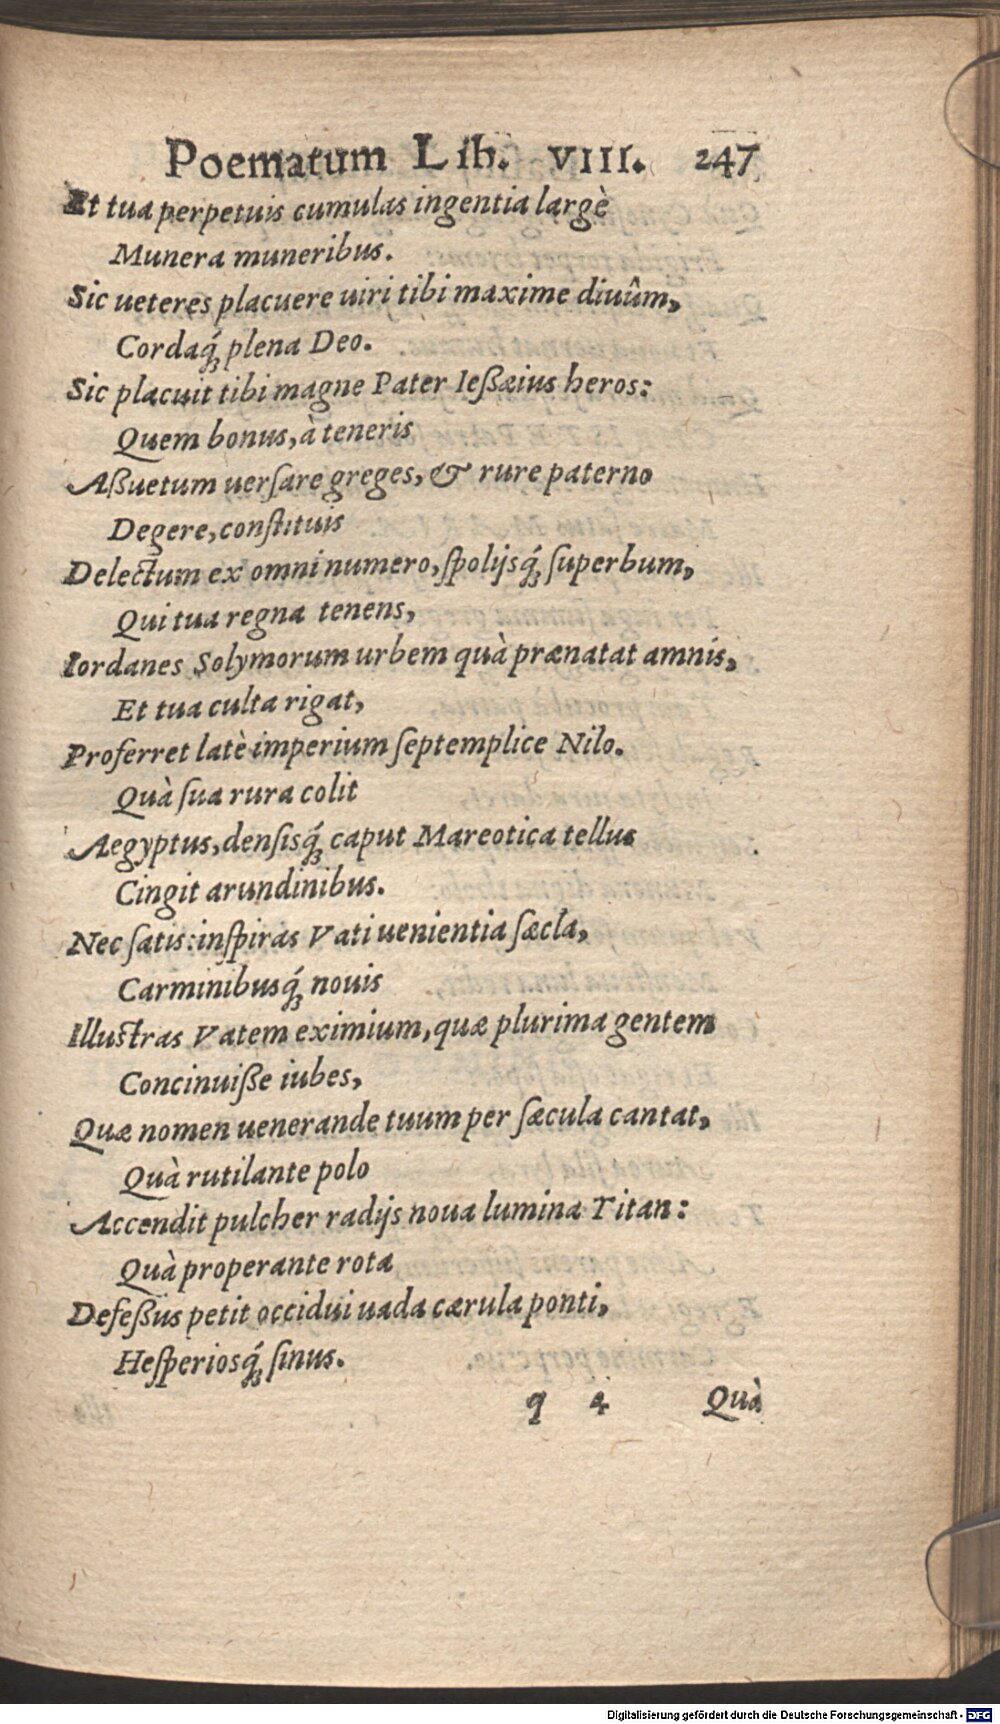 Poematum Lib. VIII. 247
Et tua perpetuis cumulas ingentia largè
Munera muneribus.
Sic ueteres placuere uiri tibi maxime diuûm,
Cordaq́; plena Deo.
Sic placuit tibi magne Pater Ießæius heros:
Quem bonus, à teneris
Aßuetum uerſare greges, & rure paterno
Degere, conſtituis
Delectum ex omni numero, ſpolijsq́; ſuperbum,
Qui tua regna tenens,
Iordanes Solymorum urbem quà prænatat amnis,
Et tua culta rigat,
Proferret latè imperium ſeptemplice Nilo.
Quà ſua rura colit
Aegyptus, denſisq́; caput Mareotica tellus
Cingit arundinibus.
Nec ſatis: inſpiras Vati uenientia ſæcla,
Carminibusq́; nouis
Illuſtras Vatem eximium, quæ plurima gentem
Concinuiße iubes,
Quæ nomen uenerande tuum per ſæcula cantat,
Quà rutilante polo
Accendit pulcher radijs noua lumina Titan:
Quà properante rota
Defeßus petit occidui uada cærula ponti,
Heſperiosq́; ſinus.
q 4 Quà
Digitalisierung gefördert durch die Deutsche Forschungsgemeinschaft - DFG